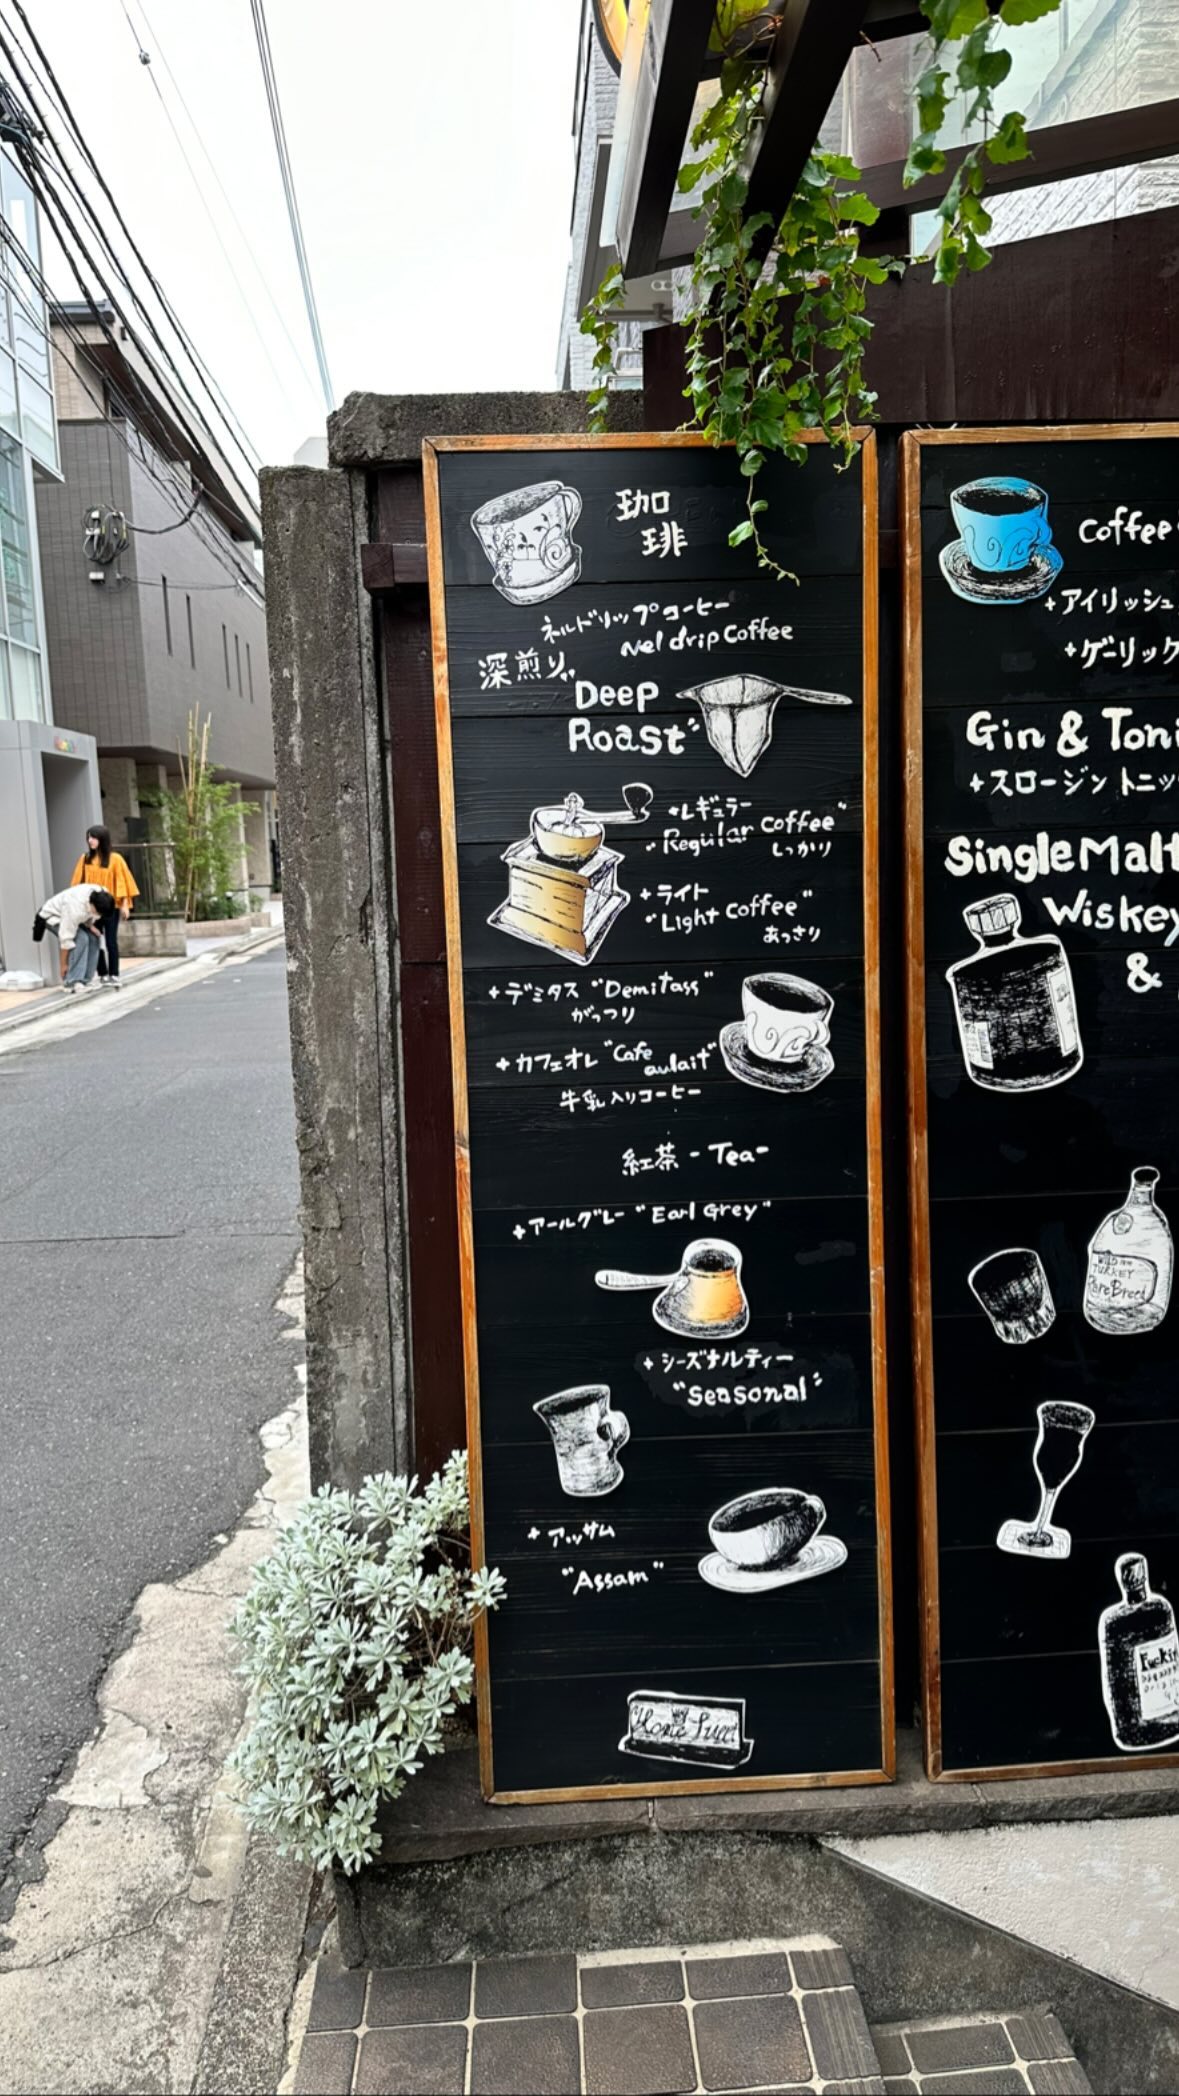 珈
琲
ネルドリップコーヒー
Nel drip Coffee
深煎り
"Deep
Roast"
+レギュラー
"Regular Coffee"
しっかり
+ライト
"Light Coffee"
あっさり
+デミタス "Demitass"
がっつり
+カフェオレ "Cafe
aulait"
牛乳入りコーヒー
紅茶 - Tea-
+アールグレー "Earl Grey"
+シーズナルティー
"Seasonal"
+アッサム
"Assam"
Coffee
+アイリッシュ
+ゲーリック
Gin & Toni
+スロージン トニッ
Single Malt
Wiskey
&
WILD
TURKEY
Rare Breed